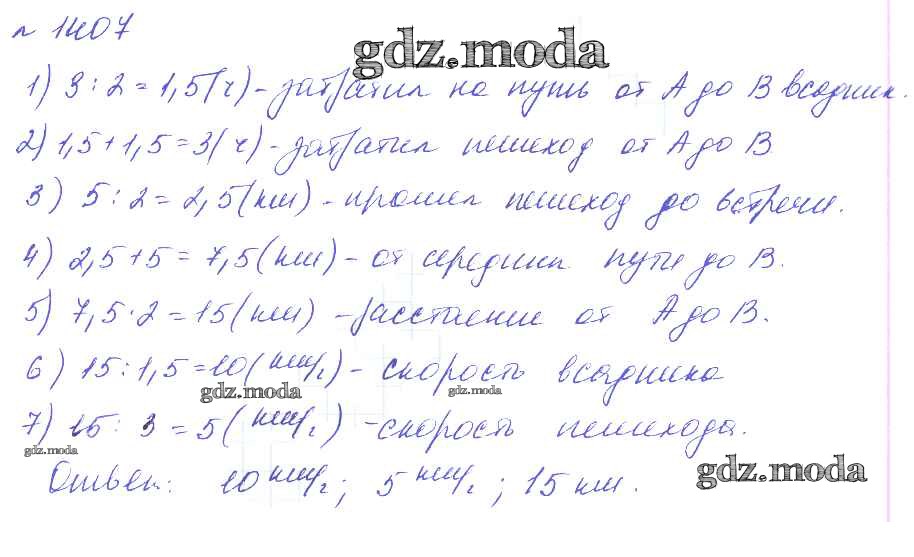 № 1407
gdz.moda
1) 3 : 2 = 1,5 (ч) - затратил на путь от А до В всадник.
2) 1,5 + 1,5 = 3 (ч) - затратил пешеход от А до В
3) 5 : 2 = 2,5 (км) - прошел пешеход до встречи.
4) 2,5 + 5 = 7,5 (км) - от середины пути до В.
5) 7,5 · 2 = 15 (км) - расстояние от А до В.
6) 15 : 1,5 = 10 (км/ч) - скорость всадника
gdz.moda gdz.moda
7) 15 : 3 = 5 (км/ч) - скорость пешехода.
gdz.moda
Ответ: 10 км/ч ; 5 км/ч ; 15 км.
gdz.moda